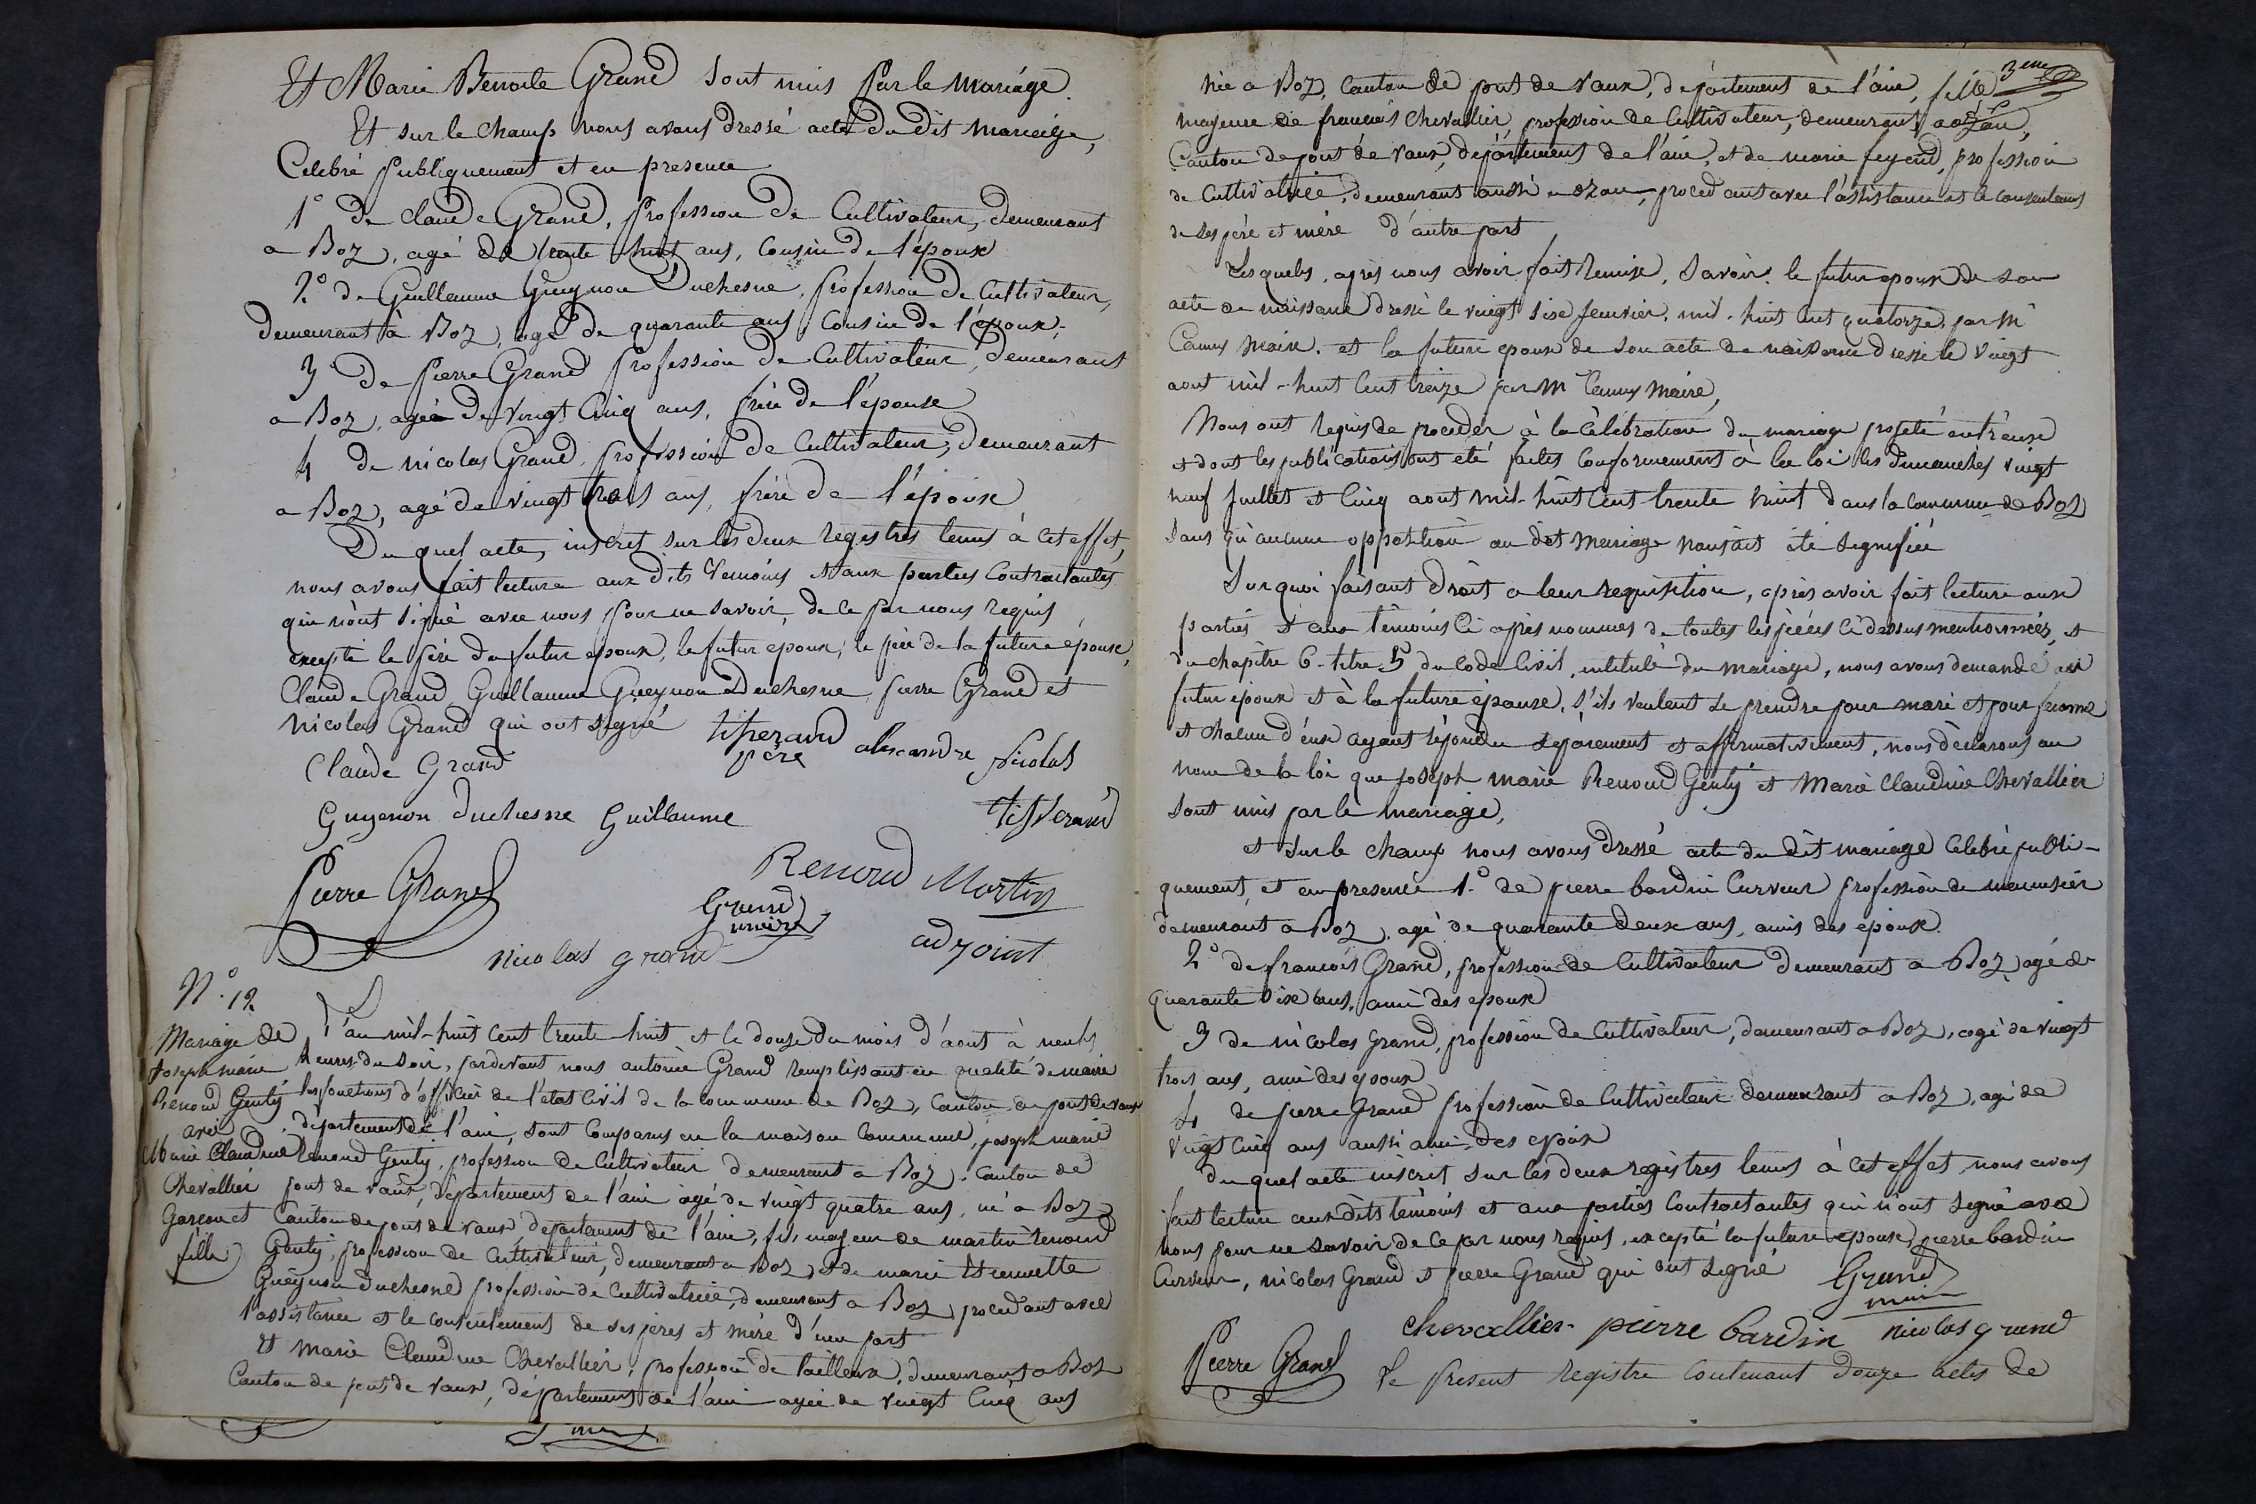 Et Marie Benoite Grand sont unis par le mariage.
Et sur le champ nous avons dressé acte du dit mariage,
Celebré publiquement et en presence
1° de claude Grand, profession de Cultivateur, demeurant
a Boz, agé de trente huit ans, cousin de l'époux
2° de Guillaume Gueynon Duchesne, profession de Cultivateur,
demeurant à Boz, agé de quarante ans, Cousin de l'epoux,
3° de pierre Grand profession de Cultivateur, demeurant
a Boz, agée de vingt Cinq ans, frère de l'épouse
4 de nicolas Grand, profession de Cultivateur, demeurant
a Boz, agé de vingt trois ans, frère de l'épouse
Du quel acte, inscrit sur les deux registres tenus à cet effet,
nous avons fait lecture aux dits temoins et aux parties Contractantes
qui n'ont signé avec nous pour ne savoir, de ce par nous requis
excepté le père du futur epoux, le futur epoux, le père de la future épouse,
Claude Grand Guillaume Gueynon Duchesne, pierre Grand et
Nicolas Grand qui ont signé
père alexandre Nicolas
Claude Grand
Guyenon duchesne Guillaume
Pierre Grand
Renoud Martin
Grand
maire
nicolas grand
adjoint
N° 12
Mariage de
Joseph marie
Renoud Genty
avec
Marie Claudine
Chevallier
Garçon et
fille
L'an mil-huit cent trente-huit et le douze du mois d'aout à neuf
heures du soir, pardevant nous antoine Grand remplissant en qualité de maire
les fonctions d'officier de l'état Civil de la commune de Boz, canton de pont de vaux
département de l'ain, sont comparus en la maison commune, joseph marie
Renoud Genty, profession de Cultivateur demeurant a Boz, canton de
pont de vaux, département de l'ain agé de vingt quatre ans, né a Boz
Canton de pont de vaux département de l'ain, fils majeur de martin renoud
Genty, profession de Cultivateur, demeurant a Boz, et de marie
Gueynon duchesne profession de Cultivatrice, demeurant a Boz procedant avec
l'assistance et le consentement de ses pères et mère d'une part
Et marie Claudine Chevallier, profession de tailleuse, demeurant a Boz
Canton de pont de vaux, département de l'ain agée de vingt Cinq ans
3eme
née a Boz, Canton de pont de vaux, département de l'ain, fille
majeure de francois chevallier, profession de Cultivateur, demeurant a ozan,
Canton de pont de vaux, département de l'ain, et de marie feyend, profession
de Cultivatrice, demeurant aussi a ozan, procedant avec l'assistance et le consentement
de ses père et mère d'autre part
Lesquels, après nous avoir fait remise, savoir: le futur epoux de son
acte de naissance dressé le vingt six fevrier, mil-huit cent quatorze, par mr
Camus maire, et la future epouse de son acte de naissance dressé le vingt
aout mil-huit Cent treize par m Camus maire,
Nous ont requis de proceder à la Célébration du mariage projeté entr'eux
et dont les publications ont eté faites Conformement à la loi les dimanches vingt
neuf juillet et Cinq aout mil-huit Cent trente huit dans la commune de Boz
sans qu'aucune opposition au dit mariage nous ait été signifiée
Sur quoi faisant droit a leur requisition, après avoir fait lecture aux
parties et aux témoins Ci après nommés de toutes les pièces Ci dessus mentionnées, et
du chapitre 6-titre 5 du Code Civil, intitulé du mariage, nous avons demandé au
futur epoux et à la future épouse, s'ils veulent se prendre pour mari et pour femme
et chacun d'eux ayant répondu séparement et affirmativement, nous déclarons au
nom de la loi que joseph marie Renoud Genty et Marie Claudine Chevallier
sont unis par le mariage,
et sur le champ nous avons dressé acte du dit mariage Celebré publi-
quement, et en presence 1.° de pierre bardin Curveur profession de menusier
demeurant a Boz, agé de quarante deux ans, amis des epoux.
2° de francois Grand, profession de Cultivateur demeurant a Boz, agé de
quarante six ans, ami des epoux
3 de nicolas Grand, profession de Cultivateur, demeurant a Boz, agé de vingt
trois ans, ami des epoux
4 de pierre Grand profession de Cultivateur demeurant a Boz, agé de
Vingt Cinq ans aussi ami des epoux
du quel acte inscrit sur les deux registres tenus à cet effet, nous avons
fait lecture aux dits témoins et aux parties Contractantes qui n'ont signé avec
nous pour ne savoir de ce par nous requis, excepté la future epouse, pierre bardin
Curveur, nicolas Grand et pierre Grand qui ont signé
Grand
maire
chevallier pierre bardin nicolas grand
Pierre Grand
Le present registre Contenant douze actes de